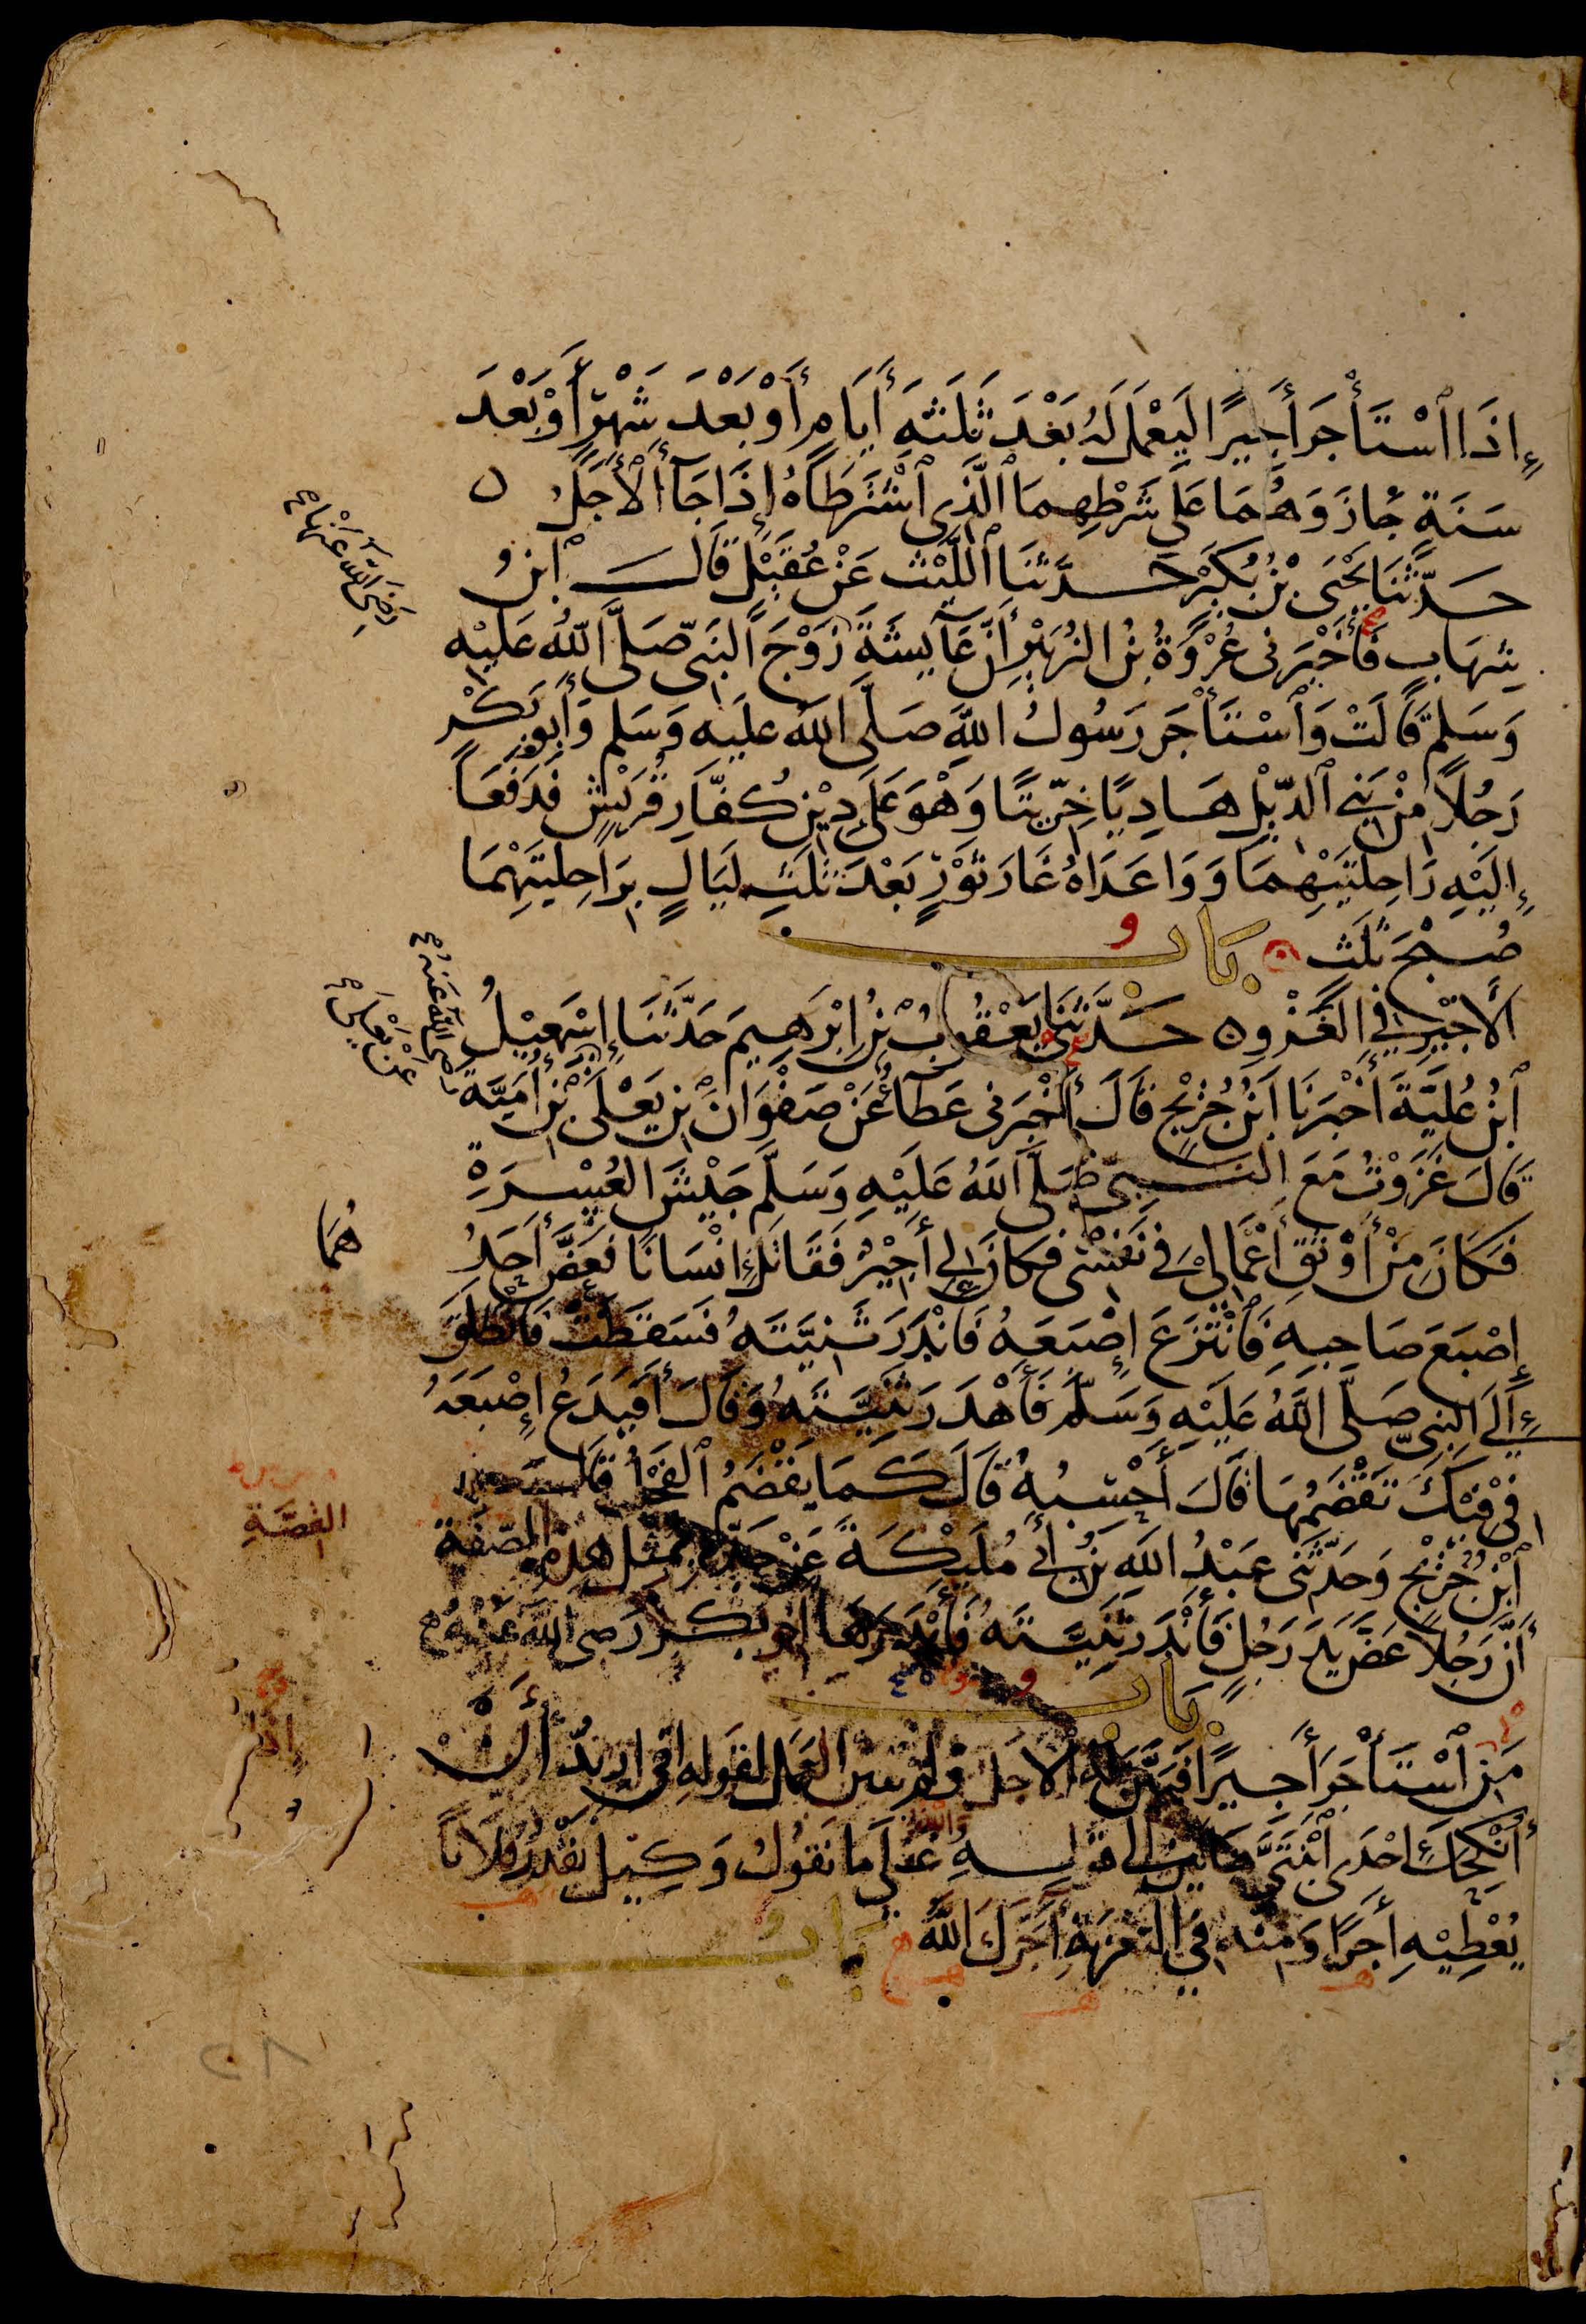 إِذَا ٱسْتَأْجَرَ أَجِيرًا لِيَعْمَلَ لَهُ بَعْدَ ثَلَثَةِ أَيَامٍ أَوْ بَعْدَ شَهْرٍ أَوْ بَعْدَ
سَنَةٍ جَازَ وَهُمَا عَلَى شَرْطِهِمَا ٱلَّذِى ٱشْتَرَطَاهُ إِذَا جَآ ٱلْأَجَلُ ٥
حَدَّثَنَا يَحْيَى بْنُ بُكَيْرٍ حَدَّثَنَا ٱللَّيْثُ عَنْ عُقَيْلٍ قَالَ ٱبْنُ
شِهَابٍ فَأَخْبَرَنِى عُرْوَةُ بْنُ الزُبَيْرِ أَنَّ عَآيِشَةَ زَوْجَ النَبِىِّ صَلَّى اللَّهُ عَلَيْهِ
رَضِىَ اللَّهُ عَنْهَا
وَسَلَّمَ قَالَتْ وَٱسْتَأْجَرَ رَسُولُ اللَّهِ صَلَّى اللَّهُ عَلَيْهِ وَسَلَم وَأَبُو بَكْرٍ
رَجُلًا مِنْ بَنِى ٱلدِّيْلِ هَادِيًا خِرِّيتًا وَهْوَ عَلَى دِيْنِ كُفَّارِ قُرَيْشٍ فَدَفَعَا
إِلَيْهِ رَاحِلَتَيْهِمَا وَوَاعَدَاهُ غَارَ ثَوْرٍ بَعْدَ ثَلَثِ لَيَالٍ بِرَاحِلَتَيْهِمَا
صُبْحَ ثَلَثٍ ٥ بَابُ
الأَجِيْرِ فِى الغَزْوِ ٥ حَدَّثَنِى يَعْقُوبُ بْنُ إِبْرَهِيمَ حَدَّثَنَا إِسْمَعِيْلُ
ٱبْنُ عُلَيَّةَ أَخْبَرَنَا ابْنُ جُرَيْجٍ قَالَ أَخْبَرَنِى عَطَآءٌ عَنْ صَفْوَانَ بْنِ يَعْلَى بْنِ أُمَيَّةَ
عَنْ يَعْلَى
رضى اللَّهُ عَنْهُ
قَالَ غَزَوْتُ مَعَ النَبِىِّ صَلَّى اللَّهُ عَلَيْهِ وَسَلَّمَ جَيْشَ العُسْرَةِ
فَكَانَ مِنْ أَوْثَقِ أَعْمَالِى فِى نَفْسِى فَكَانَ لِى أَجِيْرٌ فَقَاتَلَ إِنْسَانًا فَعَضَّ أَحَدُ
هُمَا
إِصْبَعَ صَاحِبِهِ فَٱنْتَزَعَ إِصْبَعَهُ فَأَنْدَرَ ثَنِيَّتَهُ فَسَقَطَتْ فَانْطَلَقَ
إِلَى النَبِىِّ صَلَّى اللَّهُ عَلَيْهِ وَسَلَّمَ فَأَهْدَرَ ثَنِيَّتَهُ وَقَالَ أَفَيَدَعُ إِصْبَعَهُ
فِى فِيكَ تَقْضَمُهَا قَالَ أَحْسِبُهُ قَالَ كَمَا يَقْضَمُ ٱلفَحْلُ قَالَ
ٱبْنُ جُرَيْجٍ وَحَدَّثَنِى عَبْدُ اللَّهِ بْنُ أَبِى مُلَيْكَةَ عَنْ جَدِّهِ بِمِثْلِ هَذِهِ الصِّفَةِ
القصَّةِ
أَنَّ رَجُلًا عَضَّ يَدَ رَجُلٍ فَأَنْدَرَ ثَنِيَّتَهُ فَأَهْدَرَهَا أبو بَكْرٍ رَضِىَ اللَّهُ عَنْهُ
بَابُ
مَنِ ٱسْتَأْجَرَ أَجِيرًا فَبَيَّنَ لَهُ الأَجَلَ وَلَمْ يُبَيِّنِ العَمَلَ لِقَوْلِهِ إِنِّى أُرِيدُ أَنْ
أُنْكِحَكَ إِحْدَى ٱبْنَتَىَّ هَاتَيْنِ إِلَى قَوْلِهِ عَلَى مَا نَقُولُ وَكِيْل يَقُلُ فُلَانًا
يُعْطِيْهِ أَجْرًا وَمِنْهُ فِى التَعْزِيَةِ أَجَرَكَ اللَّهُ بَابُ